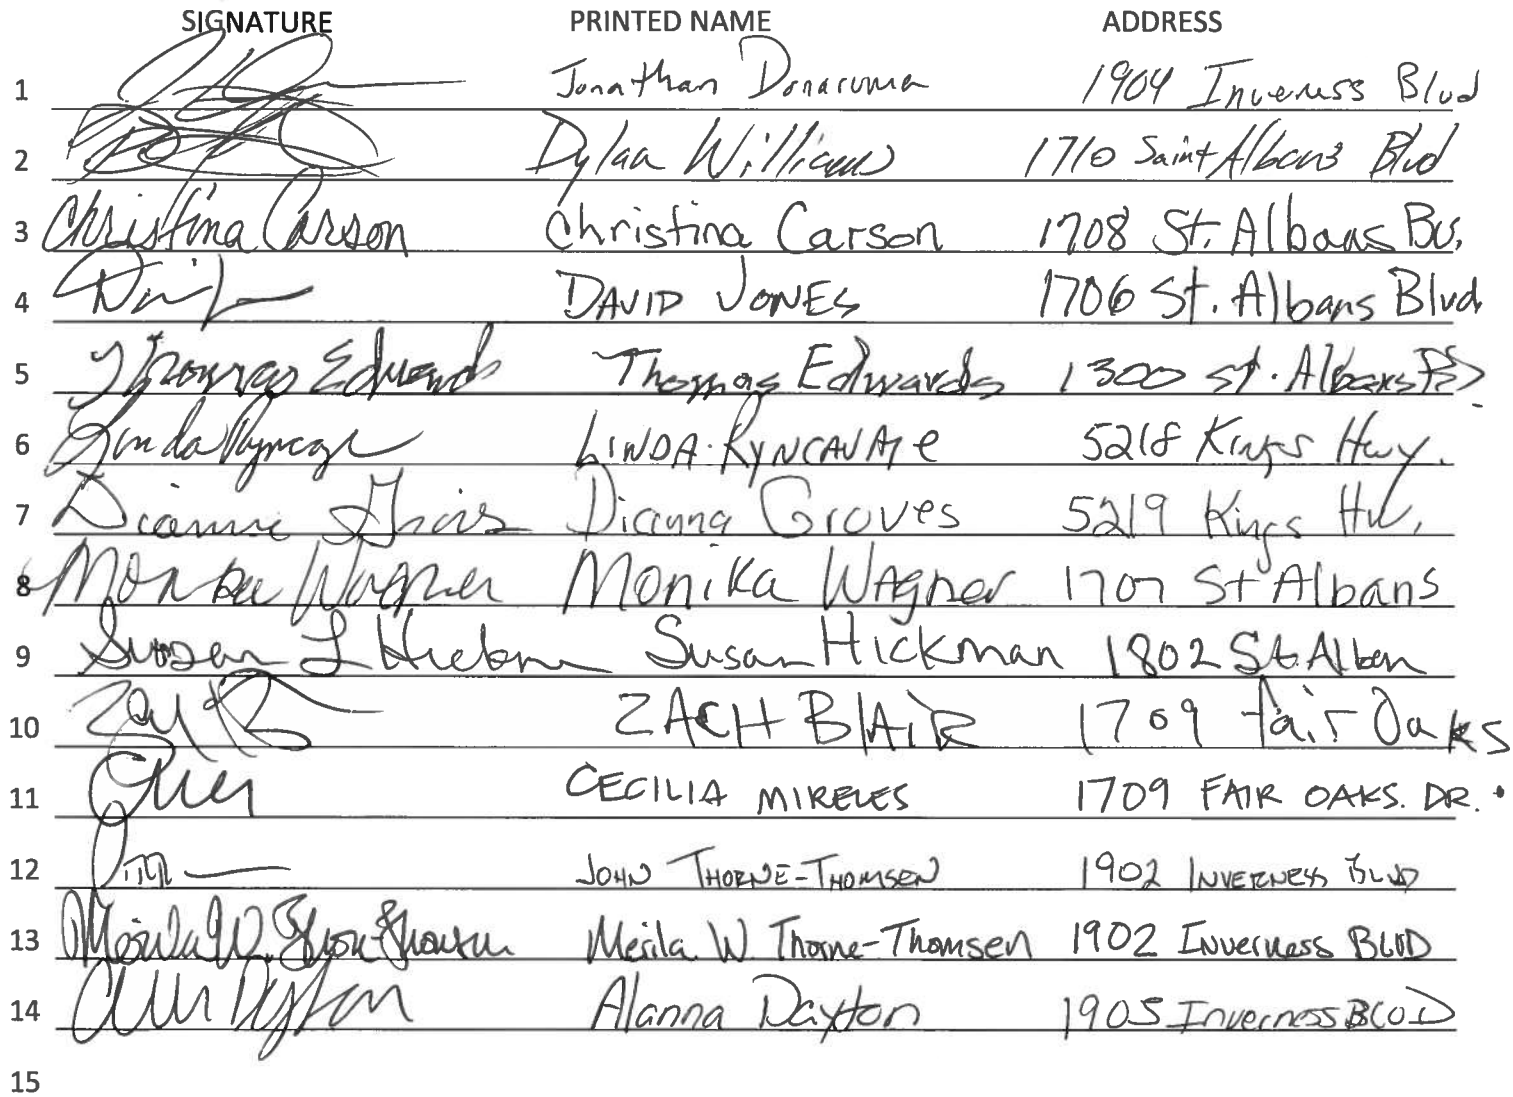 SIGNATURE PRINTED NAME ADDRESS
1 Jonathan Donaruma 1904 Inverness Blvd
2 Dylan Williams 1710 Saint Albans Blvd
3 Christina Carson Christina Carson 1708 St. Albans Bv.
4 DAVID JONES 1706 St. Albans Blvd
5 Thomas Edwards Thomas Edwards 1300 St. Albans
6 Linda LINDA 5218 Kings Hwy.
7 Dianna Groves 5219 Kings Hw,
8 Monika Wagner Monika WAgner 1707 St Albans
9 Susan L Hickman Susan Hickman 1802 St. Alban
10 ZACH BLAIR 1709 fair Oaks
11 CECILIA MIRELES 1709 FAIR OAKS. DR.
12 JOHN THORNE-THOMSEN 1902 INVERNESS BLVD
13 Merila W. Thorne-Thomsen 1902 Inverness BLVD
14 Alanna Dayton 1905 Inverness BLVD
15